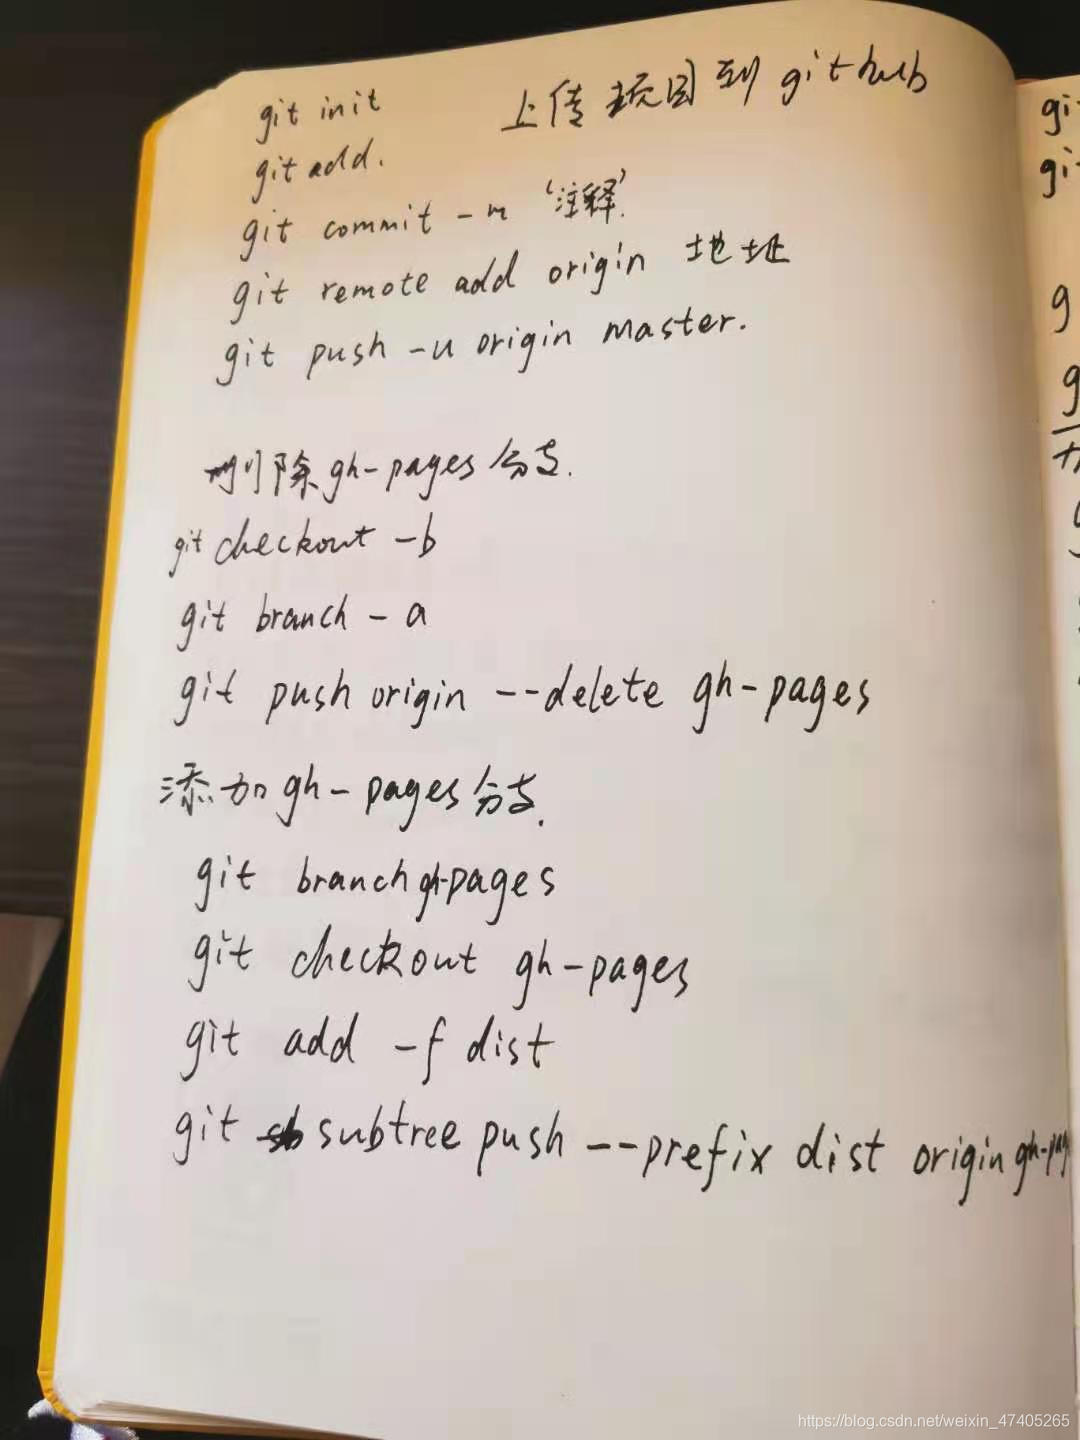 上传项目到github
git init
git add.
git commit -m '注释'.
git remote add origin 地址
git push -u origin master.
删除gh-pages分支.
git checkout -b
git branch -a
git push origin --delete gh-pages
添加gh-pages分支.
git branch gh-pages
git checkout gh-pages
git add -f dist
git subtree push --prefix dist origin gh-pag
https://blog.csdn.net/weixin_47405265